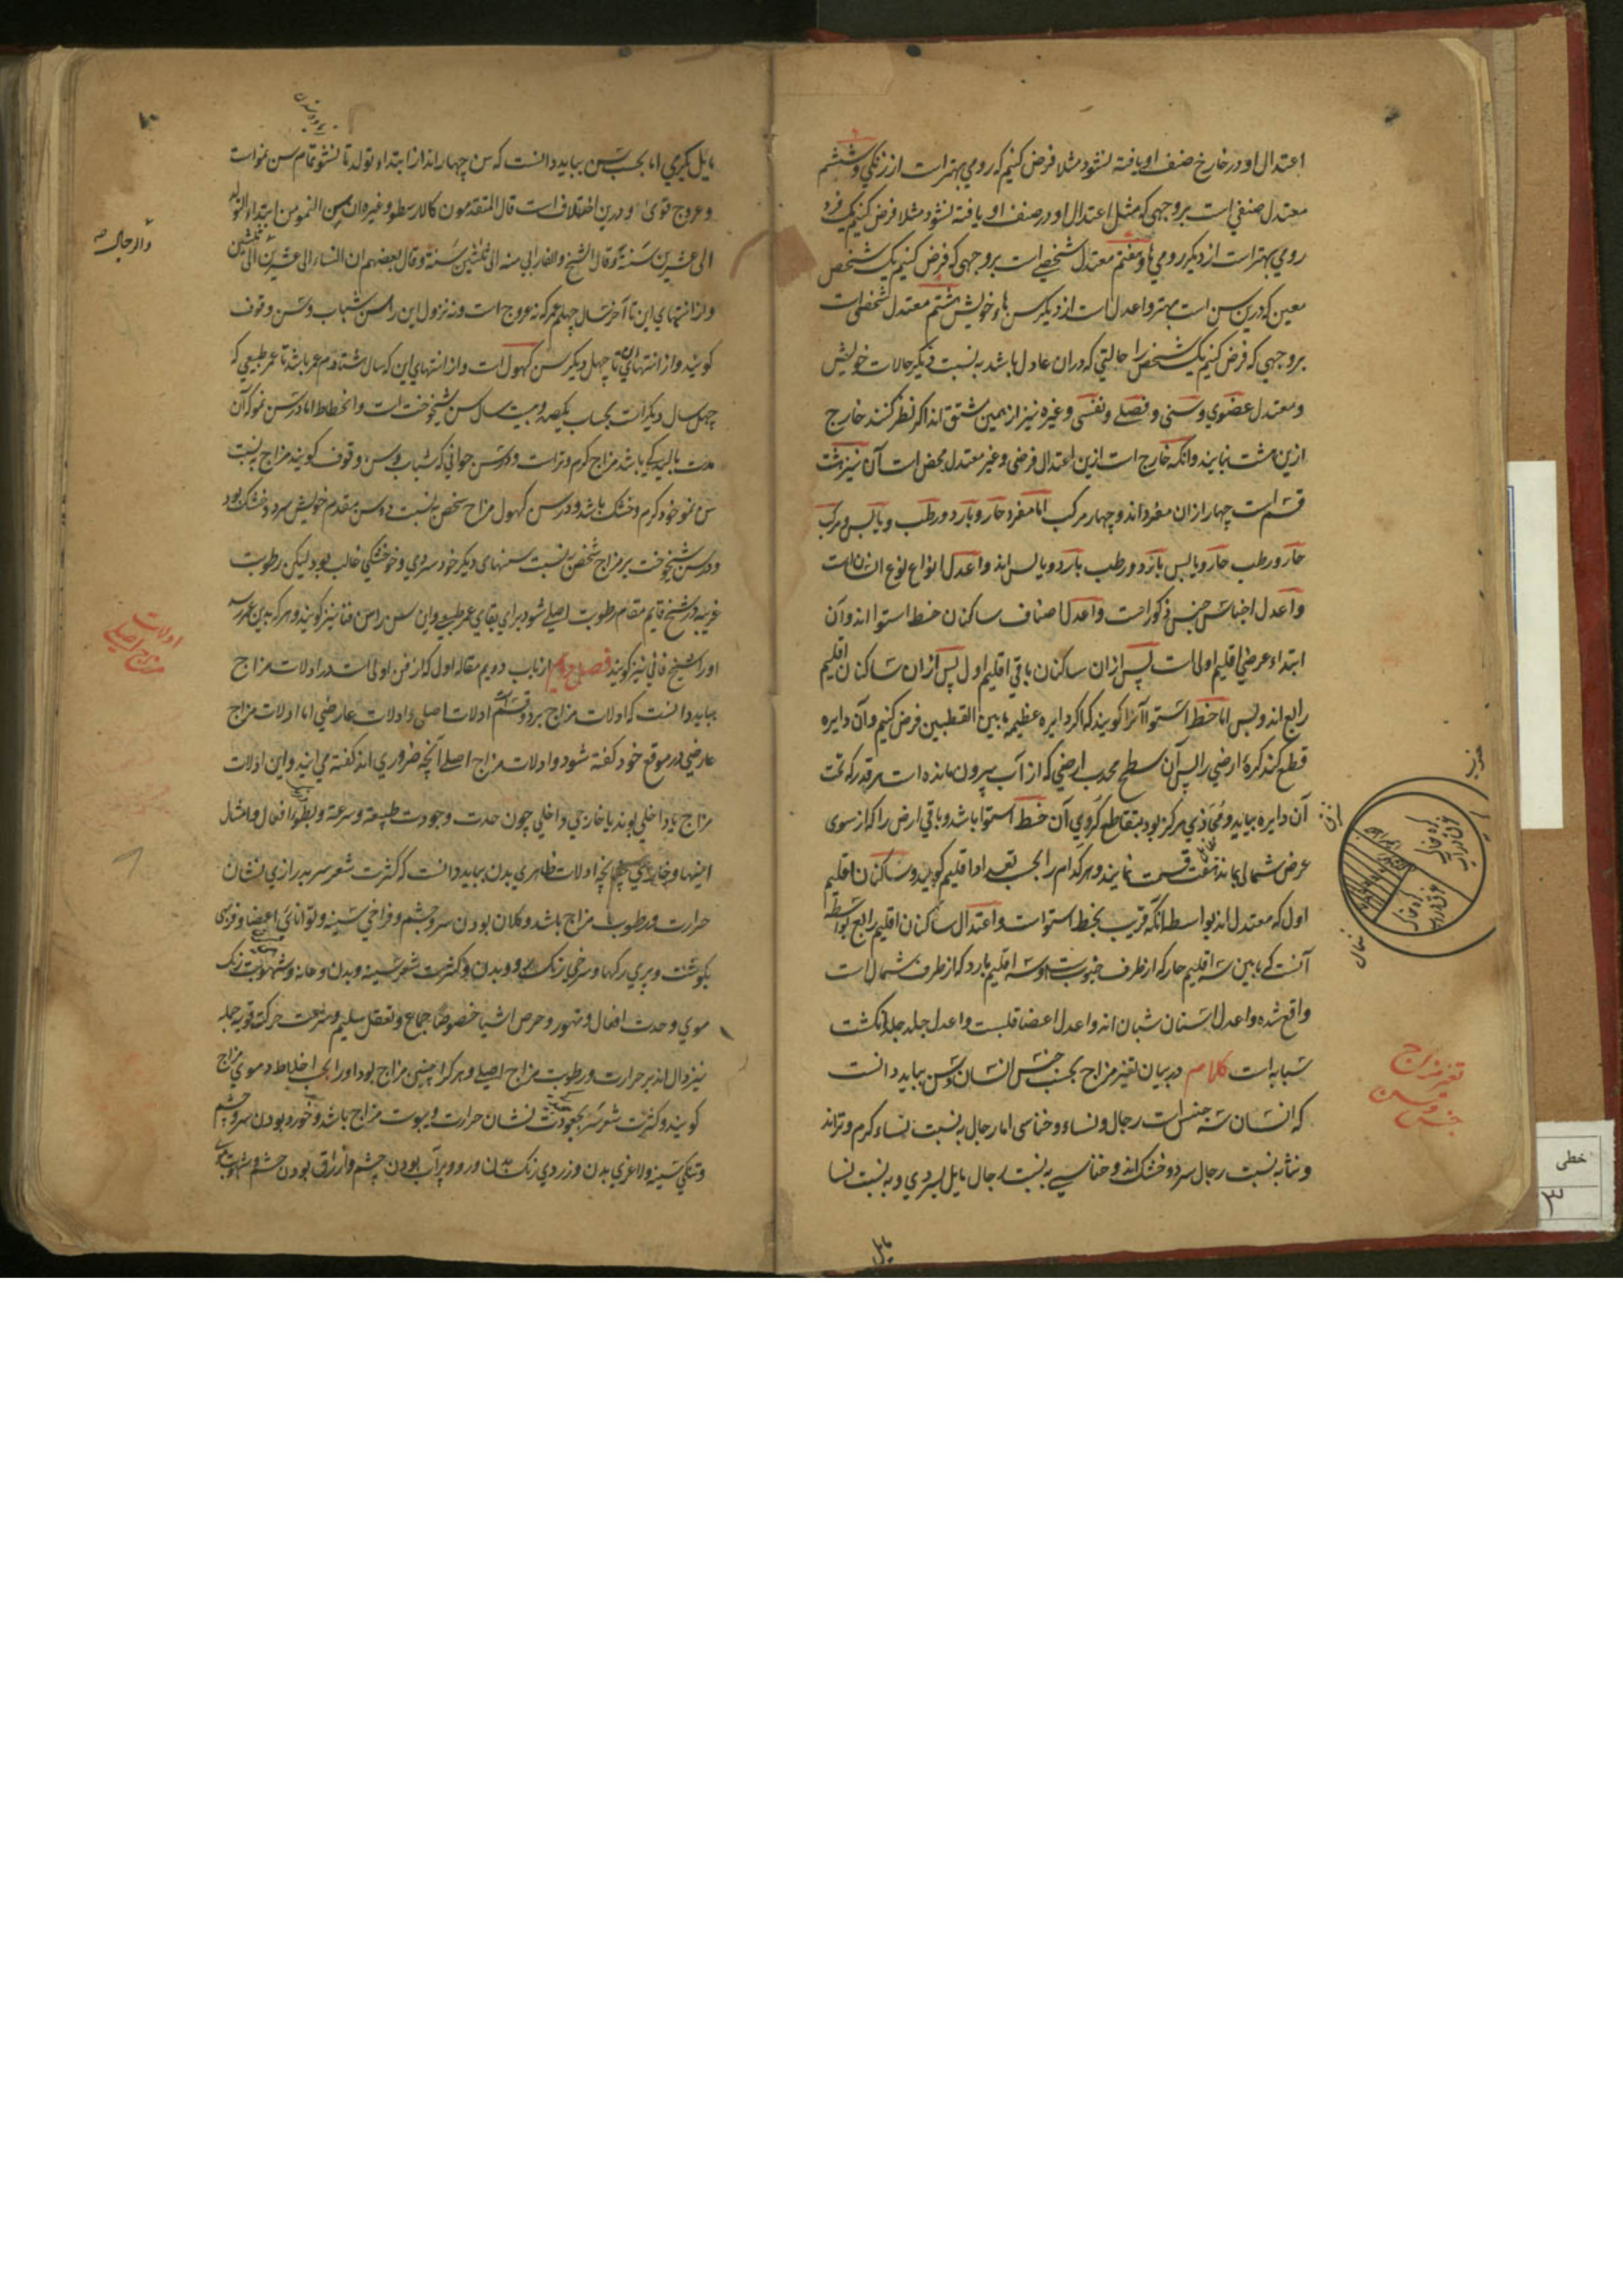 اعتدال او در خارج صنف او یافته نشود مثلا فرض کنیم که رومی بهتر است از زنگی و ششم
معتدل صنفی است بر وجهی که مثل اعتدال او در صنف او یافته نشود مثلا فرض کنیم یک فرد
رومی بهتر است از دیگر رومی ها و هفتم معتدل شخصی است بر وجهی که فرض کنیم یک شخص
معین که درین سن است بهتر و اعدل است از دیگر سن هاء خویش هشتم معتدل شخصی است
بر وجهی که فرض کنیم یک شخص را حالتی که دران عادل باشد به نسبت دیگر حالات خویش
و معتدل عضوی و سنی و فصلی و نفسی و غیره نیز از همین مشتق اند اگر نظر کنند خارج
ازین هشت نیایند و آنکه خارج است ازین اعتدال فرضی و غیر معتدل محض است آن نیز هشت
قسم است چهار ازان مفرد اند و چهار مرکب اما مفرد حار و بارد و رطب و یابس و مرکب
حار و رطب حار و یابس بارد و رطب بارد و یابس اند و اعدل انواع نوع انسان است
و اعدل اجناس جنس ذکور است و اعدل اصناف ساکنان خط استوا اند و آن
ابتداء عرضی اقلیم اولی است پس ازان ساکنان باقی اقلیم اول پس ازان ساکنان اقلیم
رابع اند و بس اما خط استوا آنرا گویند که اگر دایره عظیمه ما بین القطبین فرض کنیم و آن دایره
قطع کند کره ارضی را پس آن سطح محدب ارضی که از آب بیرون مانده است هر قدر که تحت
آن دایره بیاید و محاذی مرکز بود بتقاطع کروی آن خط استوا باشد و باقی ارض را که از سوی
عرض شمال بماند هفت قسمت نمایند و هر کدام را بحسب تعدید او اقلیم گویند و ساکنان اقلیم
اول که معتدل اند بواسطه آنکه قریب بخط استواست و اعتدال ساکنان اقلیم رابع بواسطه
آنست که ما بین سه اقلیم حار که از طرف جنوب است و سه اقلیم بارد که از طرف شمال است
واقع شده و اعدل اسنان شبان اند و اعدل اعضا قلبست و اعدل جلد جلد انگشت
سبابه است کلام در بیان تغیر مزاج بحسب جنس انسان و سن بباید دانست
که انسان سه جنس است رجال و نساء و خناسی اما رجال به نسبت نساء گرم و تراند
و نسا به نسبت رجال سرد و خشک اند و خناسی به نسبت رجال مایل بسردی و به نسبت نسا
مایل
تغیر مزاج
جنس و سن
جنوب
شمال
مایل بگرمی اما بحسب سن بباید دانست که سن چهار اند از ابتداء تولد تا نشو تمام سن نمو است
و عروج قوی و درین اختلاف است قال المتقدمون کالارسطو و غیره ان سن النمو من ابتداء التولد
الی عشرین سنة و قال الشیخ و الفارابی منه الی ثلثین سنة و قال بعضهم ان النساء الی عشرین الی ثلثین
والرجال
و از انتهای این تا آخر سال چهلم عمر که نه عروج است و نه نزول این را سن شباب و سن وقوف
گویند و از انتهای آن تا چهل دیگر سن کهول است و از انتهای این که سال هشتادم عمر باشد تا عمر طبیعی که
چهل سال دیگر است بحساب یکصد و بیست سال سن شیخوخت است و انحطاط اما در سن نمو که آن
مدت بالیدگی باشد مزاج گرم و تر است و در سن جوانی که شباب و سن وقوف گویند مزاج به نسبت
سن نمو خود گرم و خشک باشد و در سن کهول مزاج شخص به نسبت دو سن مقدم خویش سرد و خشک بود
و در سن شیخوخت بر مزاج شخص به نسبت سنهای دیگر خود سردی و خشکی غالب بود لیکن رطوبت
غریبه در شیخ قایم مقام رطوبت اصلی شود برای بقای عمر طبیعی و این سن را سن فنا نیز گویند و هر که بدین عمر رسد
او را شیخ فانی نیز گویند فصل دویم از باب دویم مقاله اول که از فن اولی است در ادلات مزاج
بباید دانست که ادلات مزاج بر دو قسم است ادلات اصلی و ادلات عارضی اما ادلات مزاج
عارضی در موقع خود گفته شود و ادلات مزاج اصلی آنچه ضروری اند گفته می آیند و این ادلات
مزاج یا داخلی بوند یا خارجی داخلی چون حدت و جودت طبیعة و سرعة و بطوء افعال و امثال
اینها و خارجی چنانچه ادلات ظاهری بدن بباید دانست که کثرت شعر سر به درازی نشان
حرارت و رطوبت مزاج باشد و کلان بودن سر و چشم و فراخی سینه و توانائی اعضا و فربهی
بگوشت و پری رگها و سرخی رنگ رو و بدن و کثرت شعر سینه و بدن و عانه و شهوبت رنگ
موی و حدت افعال و تهور و حرص اشیا خصوصا جماع و تعقل سلیم و سرعت حرکت قویه جمله
نیز دال اند بر حرارت و رطوبت مزاج اصلی و هر کرا چنین مزاج بود او را بحسب اخلاط دموی مزاج
گویند و کثرت شعر سر بجعودت نشان حرارت و یبوست مزاج باشد و خورد بودن سر و چشم
و تنگی سینه و لاغری بدن و زردی رنگ بدن و رو و پر آب بودن چشم و ازرق بودن چشم
ادلات
مزاج اصلی
خطی
۳